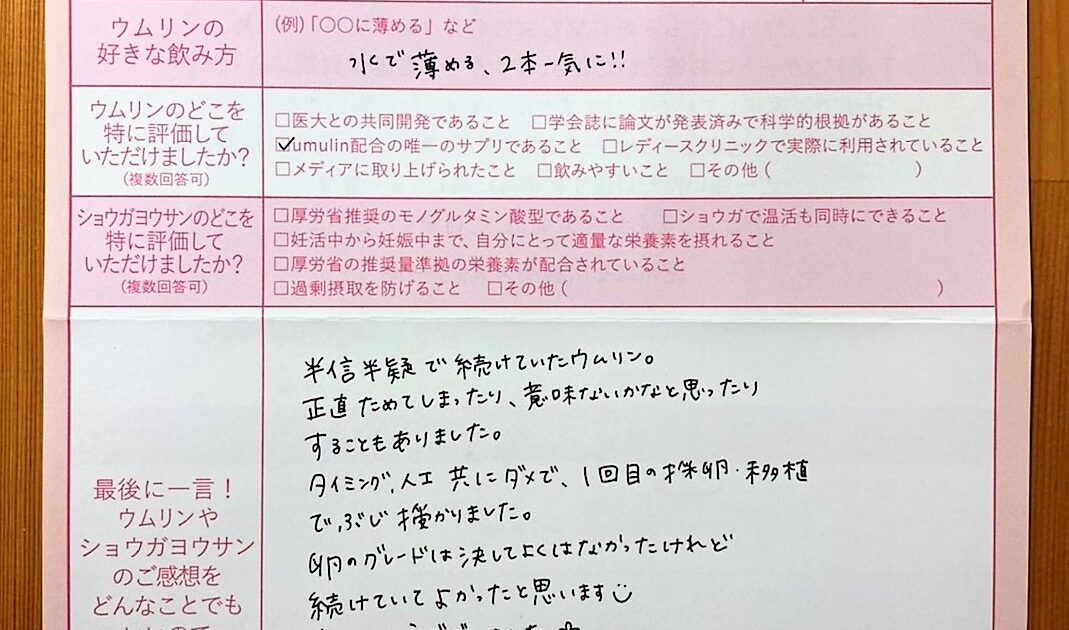 ウムリンの
好きな飲み方
(例)「〇〇に薄める」など
水で薄める、2本一気に!!
ウムリンのどこを
特に評価して
いただけましたか?
(複数回答可)
□医大との共同開発であること □学会誌に論文が発表済みで科学的根拠があること
☑umulin配合の唯一のサプリであること □レディースクリニックで実際に利用されていること
□メディアに取り上げられたこと □飲みやすいこと □その他( )
ショウガヨウサンのどこを
特に評価して
いただけましたか?
(複数回答可)
□厚労省推奨のモノグルタミン酸型であること □ショウガで温活も同時にできること
□妊活中から妊娠中まで、自分にとって適量な栄養素を摂れること
□厚労省の推奨量準拠の栄養素が配合されていること
□過剰摂取を防げること □その他( )
最後に一言!
ウムリンや
ショウガヨウサン
のご感想を
どんなことでも
半信半疑で続けていたウムリン。
正直ためてしまったり、意味ないかなと思ったり
することもありました。
タイミング、人工 共にダメで、1回目の採卵・移植
で、ぶじ 授かりました。
卵のグレードは決してよくはなかったけれど
続けていてよかったと思います